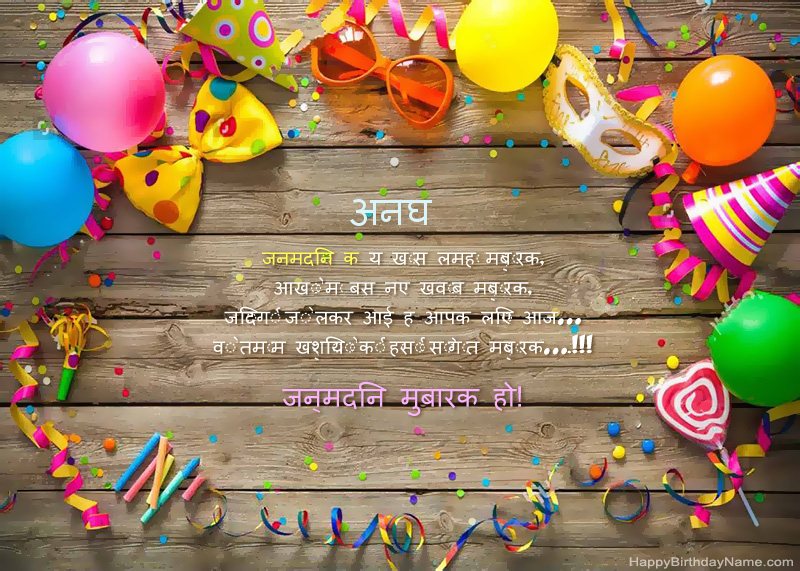 अनघ
जनमदिन क य खास लमह मबारक,
आखों म बस नए खवाब मबारक,
जिंदगी जो लकर आई ह आपक लिए आज...
वो तमाम खशियों की हसीं सौगात मबारक....!!!
जन्मदिन मुबारक हो!
HappyBirthdayName.com